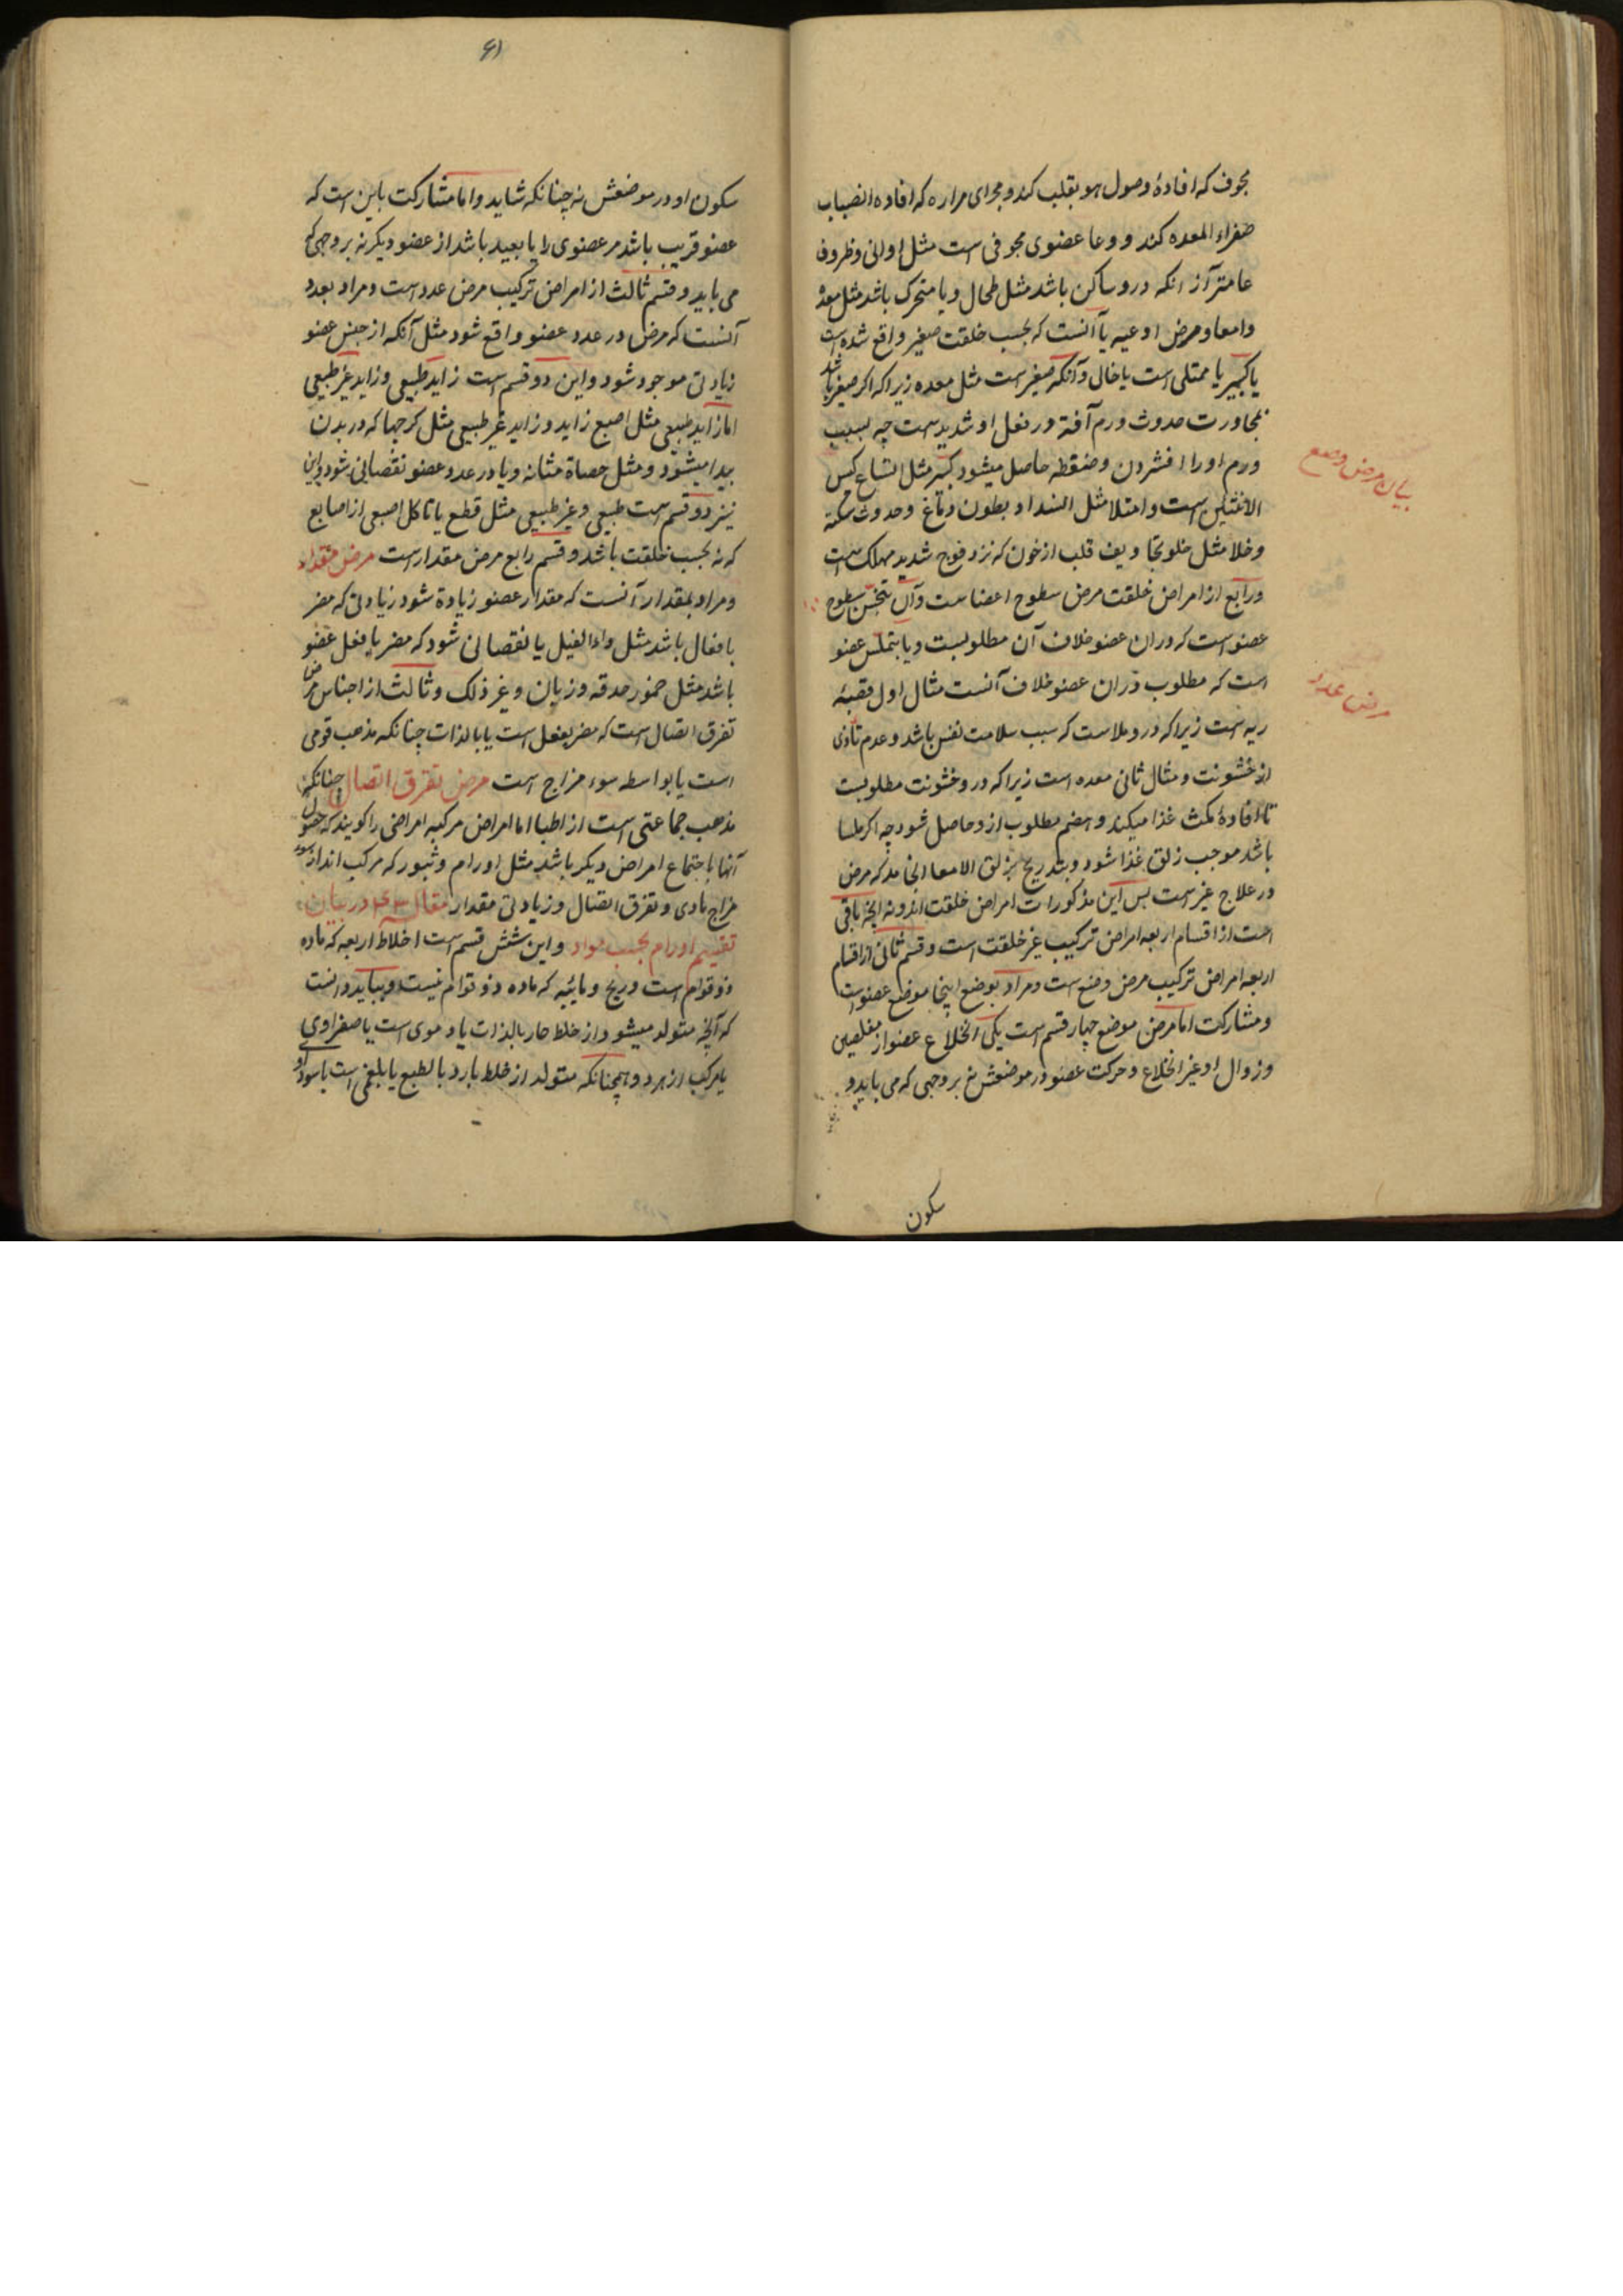 مجوف که افادهٔ وصول هو بقلب کند و مجرای مراره که افاده انصباب
صفراء المعده کند و وعا عضوی مجوفی است مثل اوانی و ظروف
عامتر از انکه درو ساکن باشد مثل طحال و یا متحرک باشد مثل معدهٔ
و امعا و مرض اوعیه یا آنست که بحسب خلقت صغیر واقع شده است
یا کبیر یا ممتلی است یا خال و آنکه صغیر است مثل معده زیرا که اکر صغیر باشد
بمجاورت حدوث ورم آفة در فعل او شدید است چه بسبب
ورم او را افشردن و ضغطه حاصل میشود کبیر مثل اتساع کیس
الانثیین است و امتلا مثل انسداد بطون دماغ و حدوث سکته
و خلا مثل خلو تجاویف قلب از خون که نزد فرح شدید مهلک است
و رابع از امراض خلقت مرض سطوح اعضا ست و آن تخشن سطوح
عضو است که دران عضو خلاف آن مطلوبست و یا بتملس عضو
است که مطلوب دران عضو خلاف آنست مثال اول قصبهٔ
ریه است زیرا که درو ملاست که سبب سلامت نفس باشد و عدم تاذی
از خشونت و مثال ثانی معده است زیرا که درو خشونت مطلوبست
تا افادهٔ مکث غذا میکند و هضم مطلوب ازو حاصل شود چه اکر ملسا
باشد موجب زلق غذا شود و بتدریج بزلق الامعا انجامد که مرض
در علاج غیر است بس این مذکورات امراض خلقت اند و نه انچه باقی
است از اقسام اربعه امراض ترکیب غیر خلقت است و قسم ثانی از اقسام
اربعه امراض ترکیب مرض وضع است و مراد بوضع اینجا موضع عضو است
و مشارکت اما مرض موضع چهار قسم است یکی انخلاع عضو از مفصلین
و زوال او غیر انخلاع و حرکت عضو در موضعش نه بر وجهی که می باید و
سکون
بیان مرض وضع
مرض عدد
۶۱
سکون او در موضعش نه چنانکه شاید و اما مشارکت باین است که
عضو قریب باشد مر عضوی را یا بعید باشد از عضو دیکر نه بر وجهی که
می باید و قسم ثالث از امراض ترکیب مرض عدد است و مراد بعدد
آنست که مرض در عدد عضو واقع شود مثل آنکه از جنس عضو
زیادتی موجود شود و این دو قسم است زاید طبیعی و زاید غیر طبیعی
اما زاید طبیعی مثل اصبع زاید و زاید غیر طبیعی مثل کرمها که در بدن
بیدا میشود و مثل حصاة مثانه و یا در عدد عضو نقصانی شود و این
نیز دو قسم است طبیعی و غیر طبیعی مثل قطع یا تاکل اصبعی از اصابع
که نه بحسب خلقت باشد و قسم رابع مرض مقدار است مرض مقدار
و مراد بمقدار آنست که مقدار عضو زیادة شود زیادتی که مضر
بافعال باشد مثل داء الفیل یا نقصانی شود که مضر بافعل عضو
باشد مثل ضمور حدقه و زبان و غیر ذلک و ثالث از اجناس مرض
تفرق اتصال است که مضر بفعل است یا بالذات چنانکه مذهب قومی
است یا بواسطه سوء مزاج است مرض تفرق اتصال چنانکه
مذهب جماعتی است از اطبا اما امراض مرکبه امراضی را کویند که حصول
آنها باجتماع امراض دیکر باشد مثل اورام و ثبور که مرکب اند از سوء
مزاج مادی و تفرق اتصال و زیادتی مقدار مقال ۴۳ در بیان
تقسیم اورام بحسب مواد و این شش قسم است اخلاط اربعه که ماده
ذو قوام است و ریح و مائیه که ماده ذو قوام نیست و بباید دانست
که آنچه متولد میشود از خلط حار بالذات یا دموی است یا صفراوی
یا مرکب از هر دو و همچنانکه متولد از خلط بارد بالطبع یا بلغمی است یا سوداوی